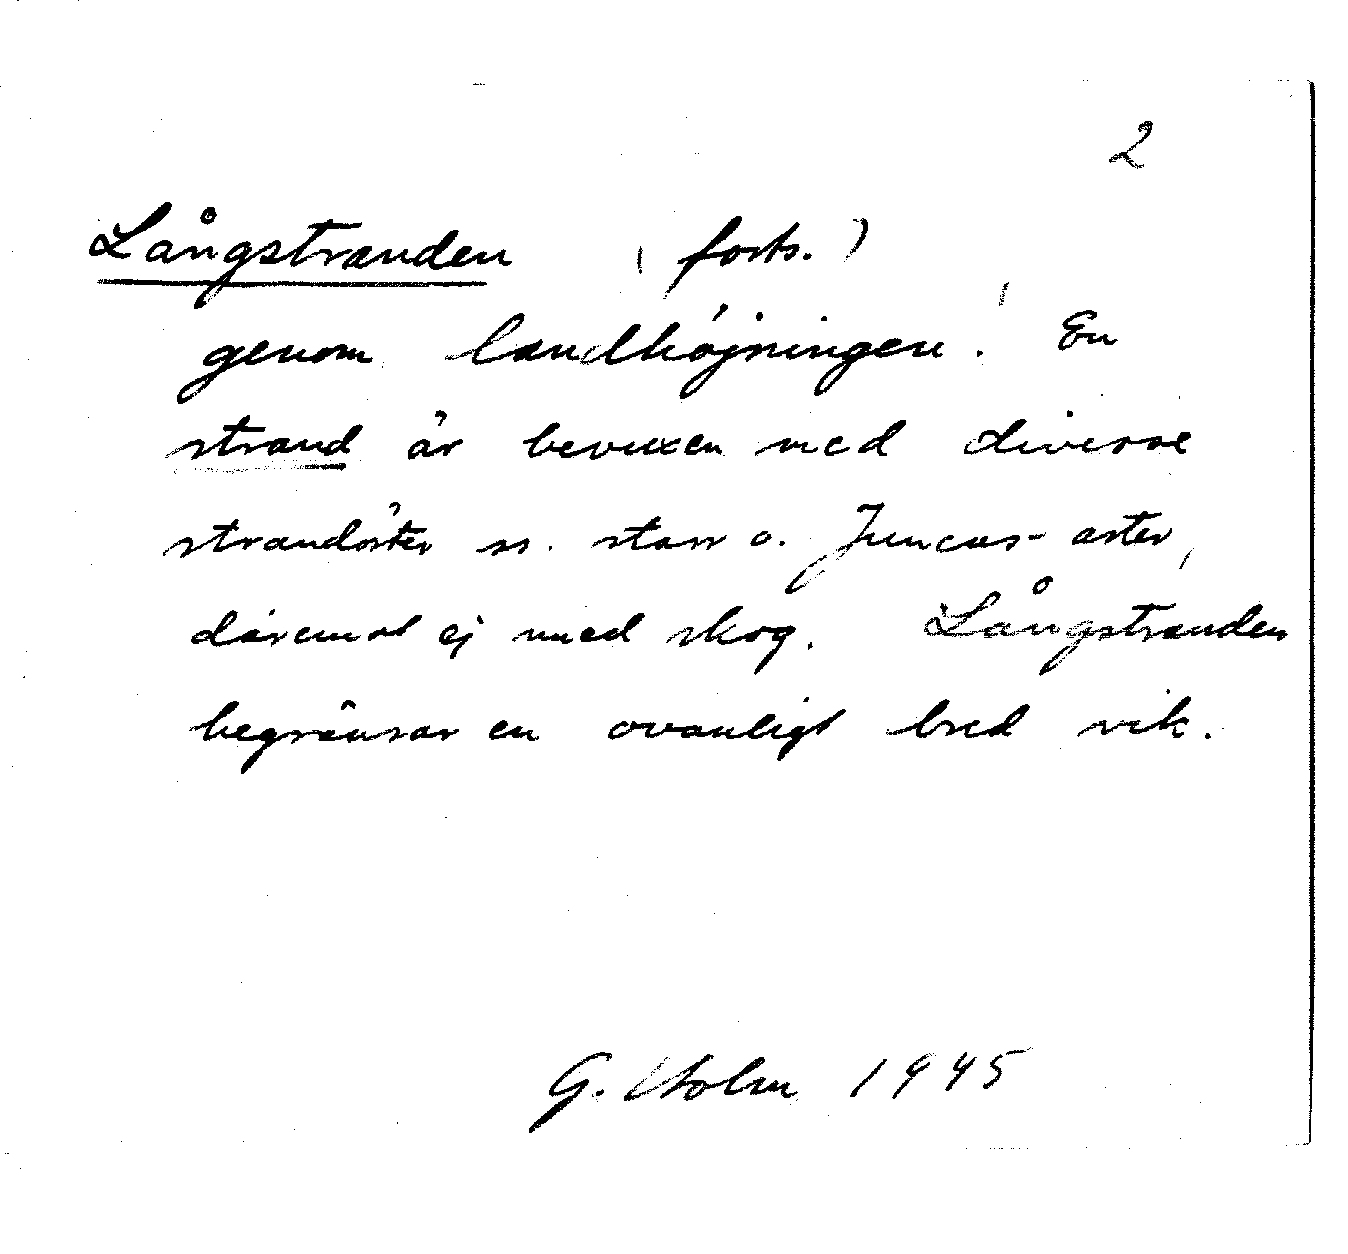 2
Långstranden (forts.)
genom landhöjningen. En
strand är bevuxen med diverse
strandörter ss. starr o. Juncus-arter,
däremot ej med skog. Långstranden
begränsar en ovanligt bred vik.
G. Holm 1945